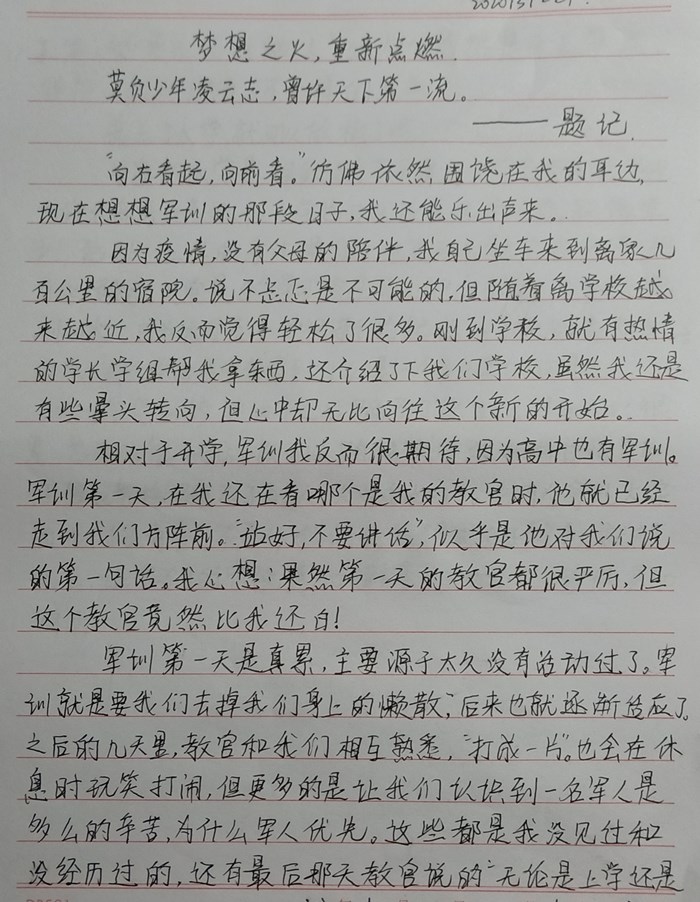 梦想之火，重新点燃.
莫负少年凌云志，曾许天下第一流。
——题记.
“向右看起，向前看。”仿佛依然围饶在我的耳边，
现在想想军训的那段日子，我还能乐出声来。
因为疫情，没有父母的陪伴，我自己坐车来到离家几
百公里的宿院。说不忐忑是不可能的，但随着离学校越
来越近，我反而觉得轻松了很多。刚到学校，就有热情
的学长学组帮我拿东西，还介绍了下我们学校，虽然我还是
有些晕头转向，但心中却无比向往这个新的开始。
相对于开学，军训我反而很期待，因为高中也有军训。
军训第一天，在我还在看哪个是我的教官时，他就已经
走到我们方阵前。“站好，不要讲话”，似乎是他对我们说
的第一句话。我心想：果然第一天的教官都很严厉，但
这个教官竟然比我还白！
军训第一天是真累，主要源于太久没有活动过了。军
训就是要我们去掉我们身上的懒散，后来也就逐渐适应了。
之后的几天里，教官和我们相互熟悉，“打成一片”。也会在休
息时玩笑打闹，但更多的是让我们认识到一名军人是
多么的辛苦，为什么军人优先。这些都是我没见过和
没经历过的，还有最后那天教官说的“无论是上学还是